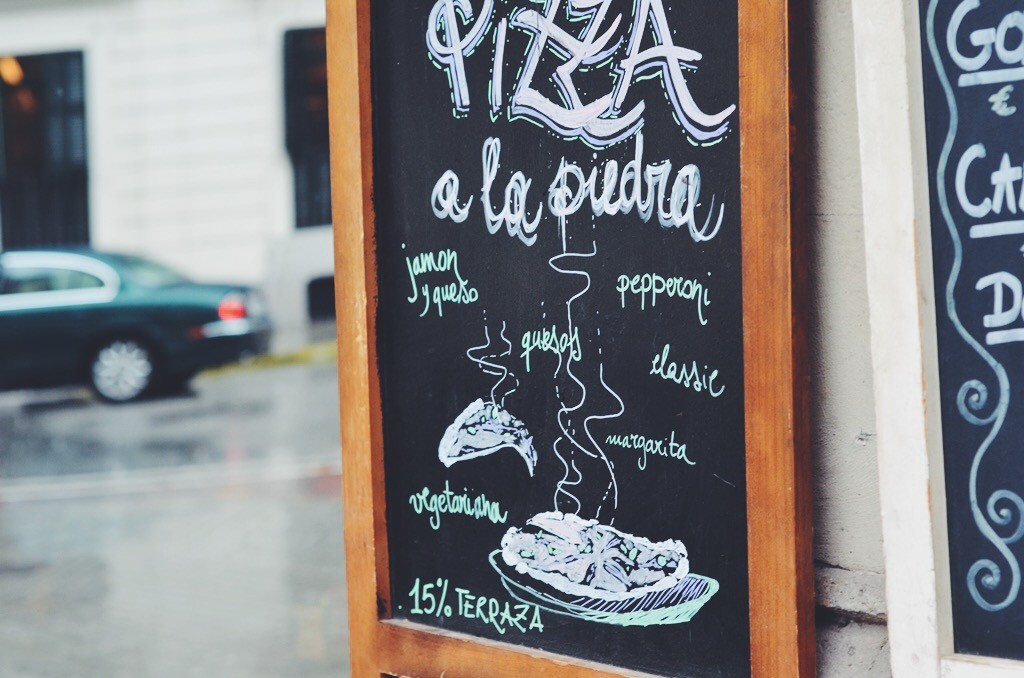 PIZZA
a la piedra
jamon
y queso
pepperoni
quesos
classic
margarita
vegetariana
15% TERRAZA
€